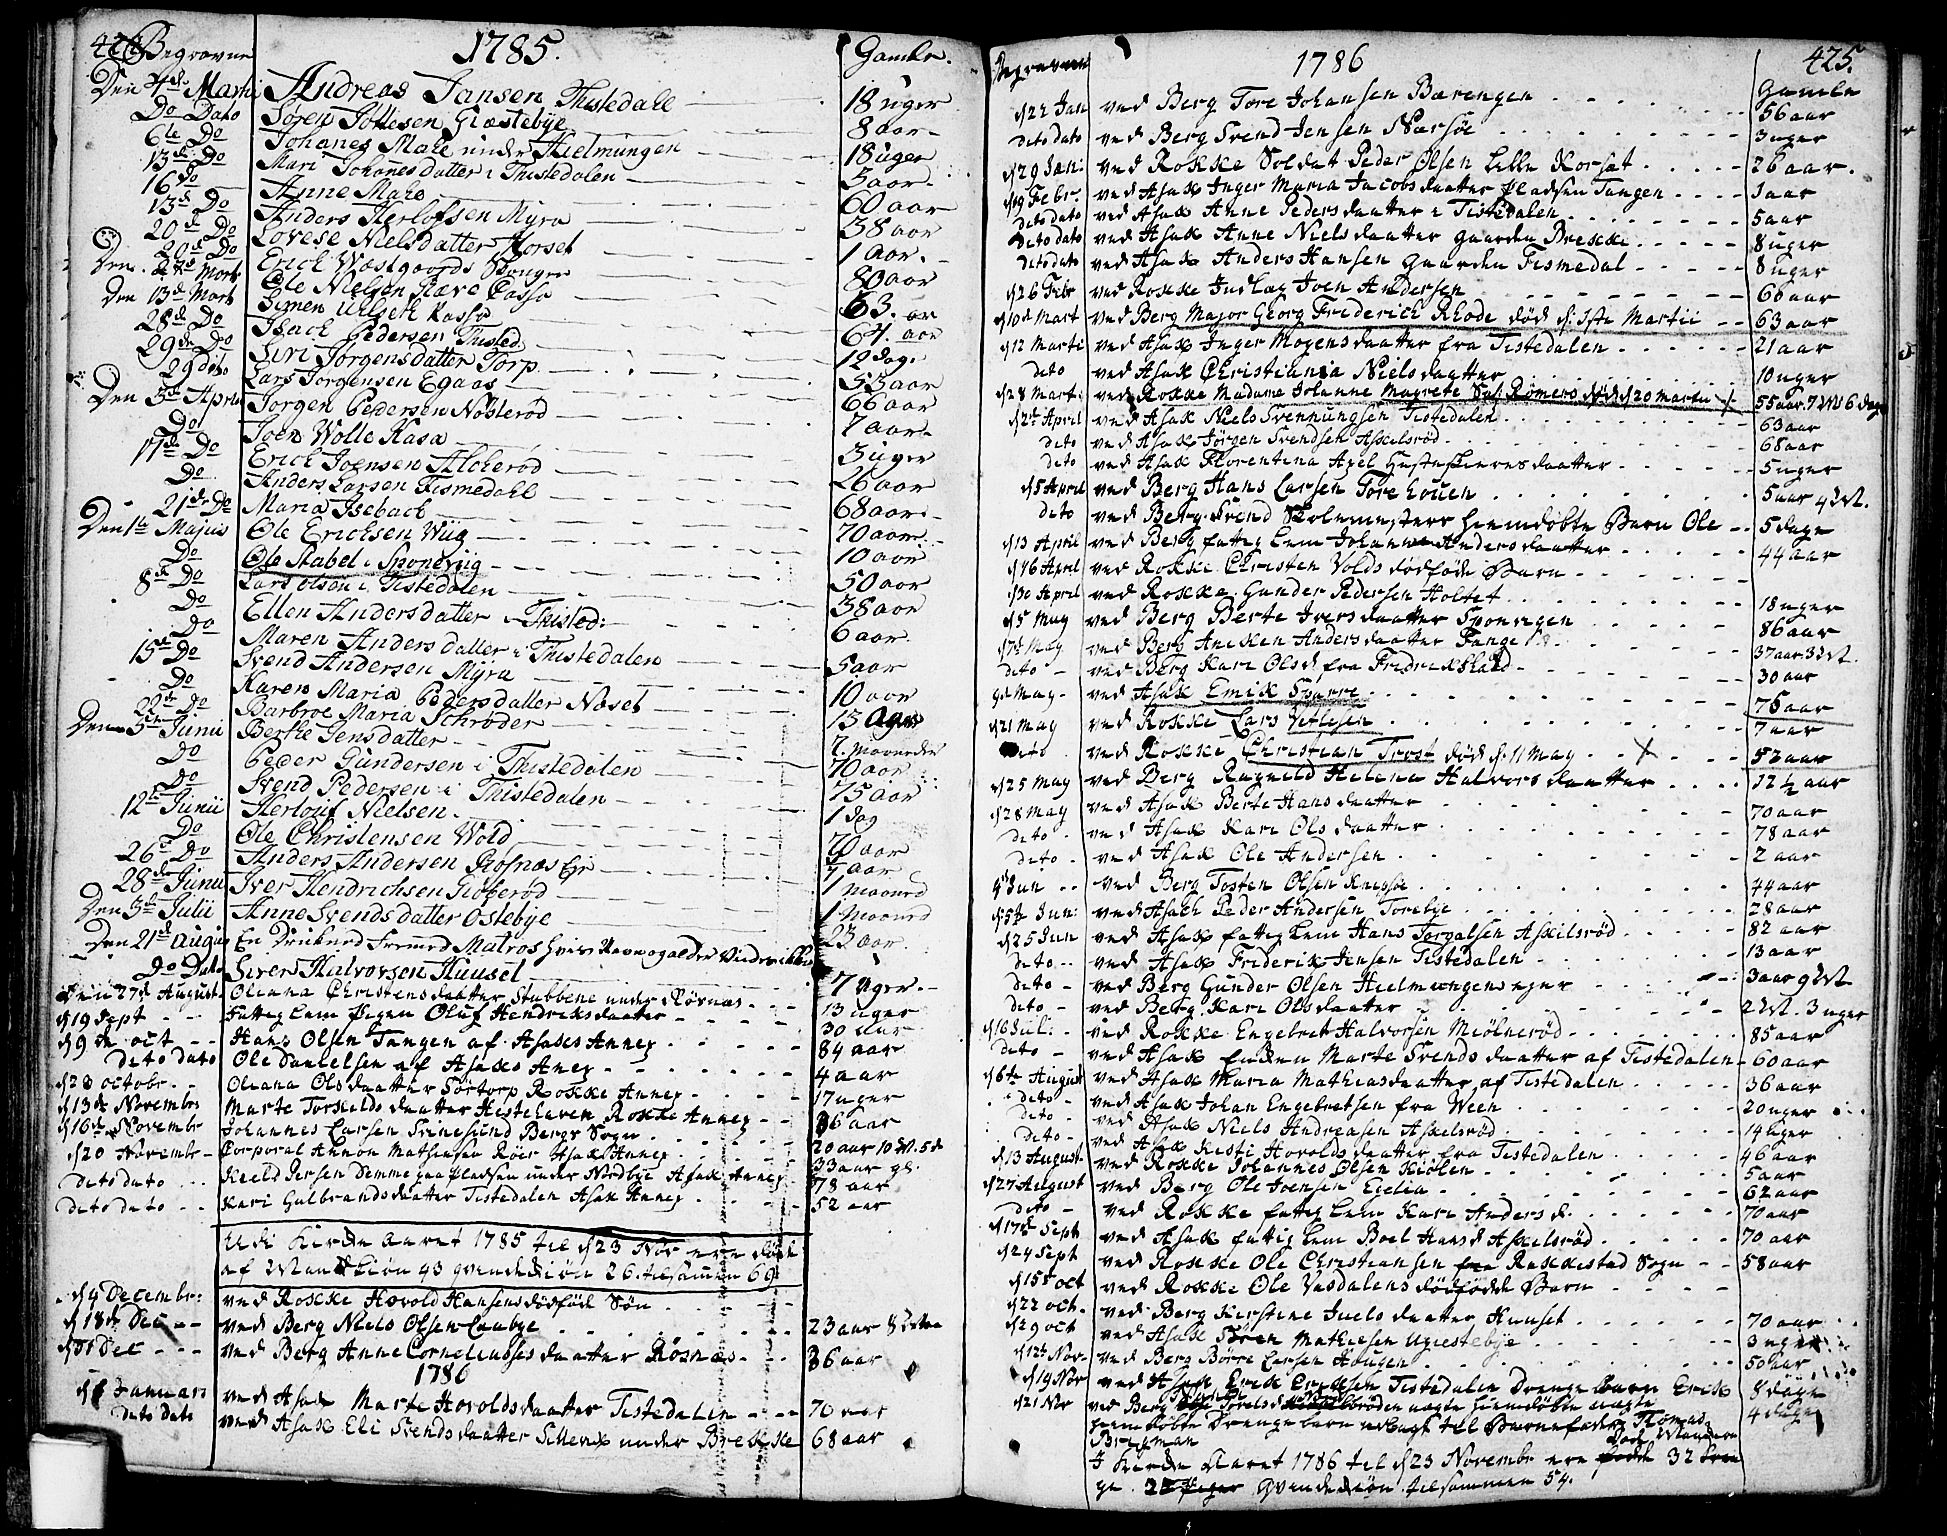 424 Begravne 1785. Gamle.
Den 4de Martii Andreas Jansen Thistedahl 18 uger
Do Dato Søren Gløstebye 8 aar
6te Do Johanes Mahe under Hielmungen 18 uger
13de Do Mari Johanesdatter i Thistedalen 5 aar
16 do Anne Mahe 60 aar
13de Do Anders Herlofsen Myra 38 aar
20de Do Lovese Nielsdatter Korset 1 aar
20de Do Erich Wæstgaards 80 aar
Den Marti Ole Nielsen 63. aar
Den 13de Marti Simen Uhlseth Kassa 64. aar
28de Do Isach Pedersen Thisted 12 dage
29de Do Siri Jørgensdatter Torp 53 aar
29 dito Lars Jørgensen Egaas 66 aar
Den 3de April Jørgen Pedersen Noblerød 7 aar
Do Joen Wolle Kasa 3 uger
17de Do Erich Joensen Alcherød 26 aar
Do Anders Larsen Tismedahl 68 aar
21de Do Maria Isebach 70 aar
Den 1te Majus Ole Erichsen Wiig 10 aar
Do Ole Stabel i Sponeviig 50 aar
8de Do Lars Olson i Tistedalen 38 aar
Do Ellen Andersdatter Thisted: 6 aar
Do Maren Anders datter i Thistedalen 5 aar
15de Do Svend Andersen Myra 10 aar
Do Karen Maria Pedersdatter Næset 15 Ager
22de Do Barbroe Maria Schrøder 7. maaneder
Den 5te Junii Berthe Jensdatter 70 aar
Do Peder Gundersen i Thistedalen 75 aar
Do Svend Pedersen i Thistedalen 1 dag
12te Junii Herlouf Nielsen. 70 aar
Do Ole Christensen Wold 7 aar
26de Do Anders Andersen Røsnæs Eje 1 maaned
28de Junii Iver Hendrichsen 1 Maaned
Den 3de Julii Anne Svends datter Ostebye 23 aar
Den 21de Augus En Druknet Fremed Matros hvis Navn og alder vides ikke
Do Dato Siver Halvorsen Huusel 7 Uger
Den 27d August. Oleana Christensdaatter Stubbene under Røsnæs 13 uger
d 19 Sept Fattig Lem Pigen Oluf Hendriksdaatter 30 aar
d 9de oct Hans Olsen Tangen af Asaks Annex 84 aar
deto dato Ole Danielsen af Asaks Anex 4 aar
d 28 octobr. Oleana Olsdaatter Sørtorp Rokke Annex 17 uger
d 13de Novembr Marte Torkelds daatter Hestehaven Rokke Annex 86 aar
d 16de Novembr Johannes Larsen Svinesund Bergs Sogn 20 aar 10 M. 5 d
d 20 Novembr Corporal Annon Mathiesen Røer Asak Annex 33 aar gl.
deto dato Keeld Persen Demme paa Pladsen under Nordbye Asak Annex 78 aar
deto dato Kari Gulbrandsdaatter Tistedalen Asak Annex 52 aar
Udi Kirke Aaret 1785 til d 23 Nov ere døde
af Mandkiøn 43 qvindekiøn 26. tilsammen 69.
d 4 Decembr: ved Rokke Horvold Hansens dødføde Søn
d 18de Dec ved Berg Niels Olsen Laabye 23 aar
Dec ved Berg Anne Corneliusses daatter Røsnæs 86 aar
1786
d 1 Januari ved Asak Marte Horolds daatter Tistedalen 70 aar
deto dato ved Asak Eli Svends daatter under Brekke 68 aar
Begravne 1786 425.
Gamle
d 22 Jan ved Berg Tore Johansen Bærengen 56 aar
deto dato ved Berg Svend Jensen Nærsøe 3 uger
d 29 Jan: ved Rokke Soldat Peder Olsen Lille Korset 26 aar.
d 19 Febr. ved Asak Inger Maria Jacobs daatter Pladsen Tangen 1 aar
deto dato ved Asak Anne Peders daatter i Tistedalen 5 aar
deto dato ved Asak Anne Niels daatter gaarden Brekke 8 uger
deto dato ved Asak Anders Hansen gaarden Tismedal 8 uger
d 26 Febr ved Rokke Indlag Joen Andersen 60 aar
d 10d Mart ved Berg Major Georg Friderich Rhode død d: 1ste Martii 63 aar
d 12 Marti ved Asak Inger Mogens daatter fra Tistedalen 21 aar
deto ved Asak Christiania Niels daatter 10 uger
d 28 Mart: ved Rokke Madame Johanne Magrete Sal: Rømers død d 20 Martii 55 aar 7 M 6 dage
d 2de April ved Asak Niels Svennungsen Tistedalen 63 aar
deto ved Asak Jørgen Svendsen Askelsrød 68 aar
deto ved Asak Florentina Axel daatter 5 uger
d 5 April ved Berg Hans Larsen Torehouen 5 aar 4 M.
deto ved Berg Svend Skolemesters hiemdøbte Barn Ole 5 dage
d 13 April ved Berg fattig Lem Johanne Anders daatter 44 aar
d 16 April ved Rokke Christen Volds dødføde Barn
d 30 April ved Rokke Gunder Pedersen Holtet 18 uger
d 5 May ved Berg Berte Ivers daatter Sponvigen 86 aar
d 7de May ved Berg Aneken Anders daatter Fange 37 aar 3 M.
deto ved Berg Kari Olsd fra Fridrikshald 30 aar
9d May ved Asak Emik Sparre 75 aar
d 21 May ved Rokke Lars Vetlesen 7 aar
deto ved Rokke Christian Trost død d. 11 May 52 aar
d 25 May ved Berg Ragnild Helena Halvors daatter 12 ½ aar
d 28 May ved Asak Berte Hans daatter 70 aar
deto ved Asak Kari Ols daatter 78 aar
deto ved Asak Ole Andersen 2 aar
4 Jun ved Berg Tosten Olsen Knepsøe 44 aar
d 5te Jun: ved Asach Peder Andersen Torebye 28 aar
d 25 Jun ved Asak fattig Lem Hans Torgalsen Askilsrød 82 aar
deto ved Asak Friderik Jensen Tistedalen 13 aar
deto ved Berg Gunder Olsen Hielmungens ejer 3 aar 9 M
deto ved Berg Kari Olsdaatter 2 M. 3 uger
d 16 Jul: ved Rokke Engebret Halvorsen Miølnerød 85 aar
deto ved Asak Enken Marte Svends daatter af Tistedalen 60 aar
d 6te August ved Asak Maria Mathiasdaatter af Tistedalen 36 aar
deto ved Asak Johan Engebretsen fra Ween 20 uger
deto ved Asak Niels Andreasen Askelsrød 14 uger
deto ved Asak Kesti Horolds daatter fra Tistedalen 46 aar
d 13 August ved Rokke Johannes Olsen Kiølen 5 aar
d 27 August ved Berg Ole Joensen 62 aar
deto ved Rokke fattig Lem Kari Anders d. 70 aar
d 17de Sept ved Asak fattig Lem Boel Hans d Askelsrød 70 aar
d 24 Sept ved Rokke Ole Christensen fra Rakkestad Sogn 58 aar
d 15de oct ved Rokke Ole Vasdalens dødfødde Barn
d 22 oct. ved Berg Kirstine Juels daatter Huuset 70 aar
d 29 oct ved Asak Søren Mathiesen 3 uger
d 12te Nov ved Berg Børre Larsen Hougen 50 aar
d 19 Nov ved Asak Erik Eriksen Tistedalen Drenge Barn Erik 8 dage
d 21 Nov ved Berg uægte hiemdøbte 4 dage
hiemdøbte Drengebarn udlagt til Barnefader Thomas
Brigman
I Kirke Aaret 1786 til d 23 Novembr ere døde Mand 32
qvindekiøn tilsammen 54.